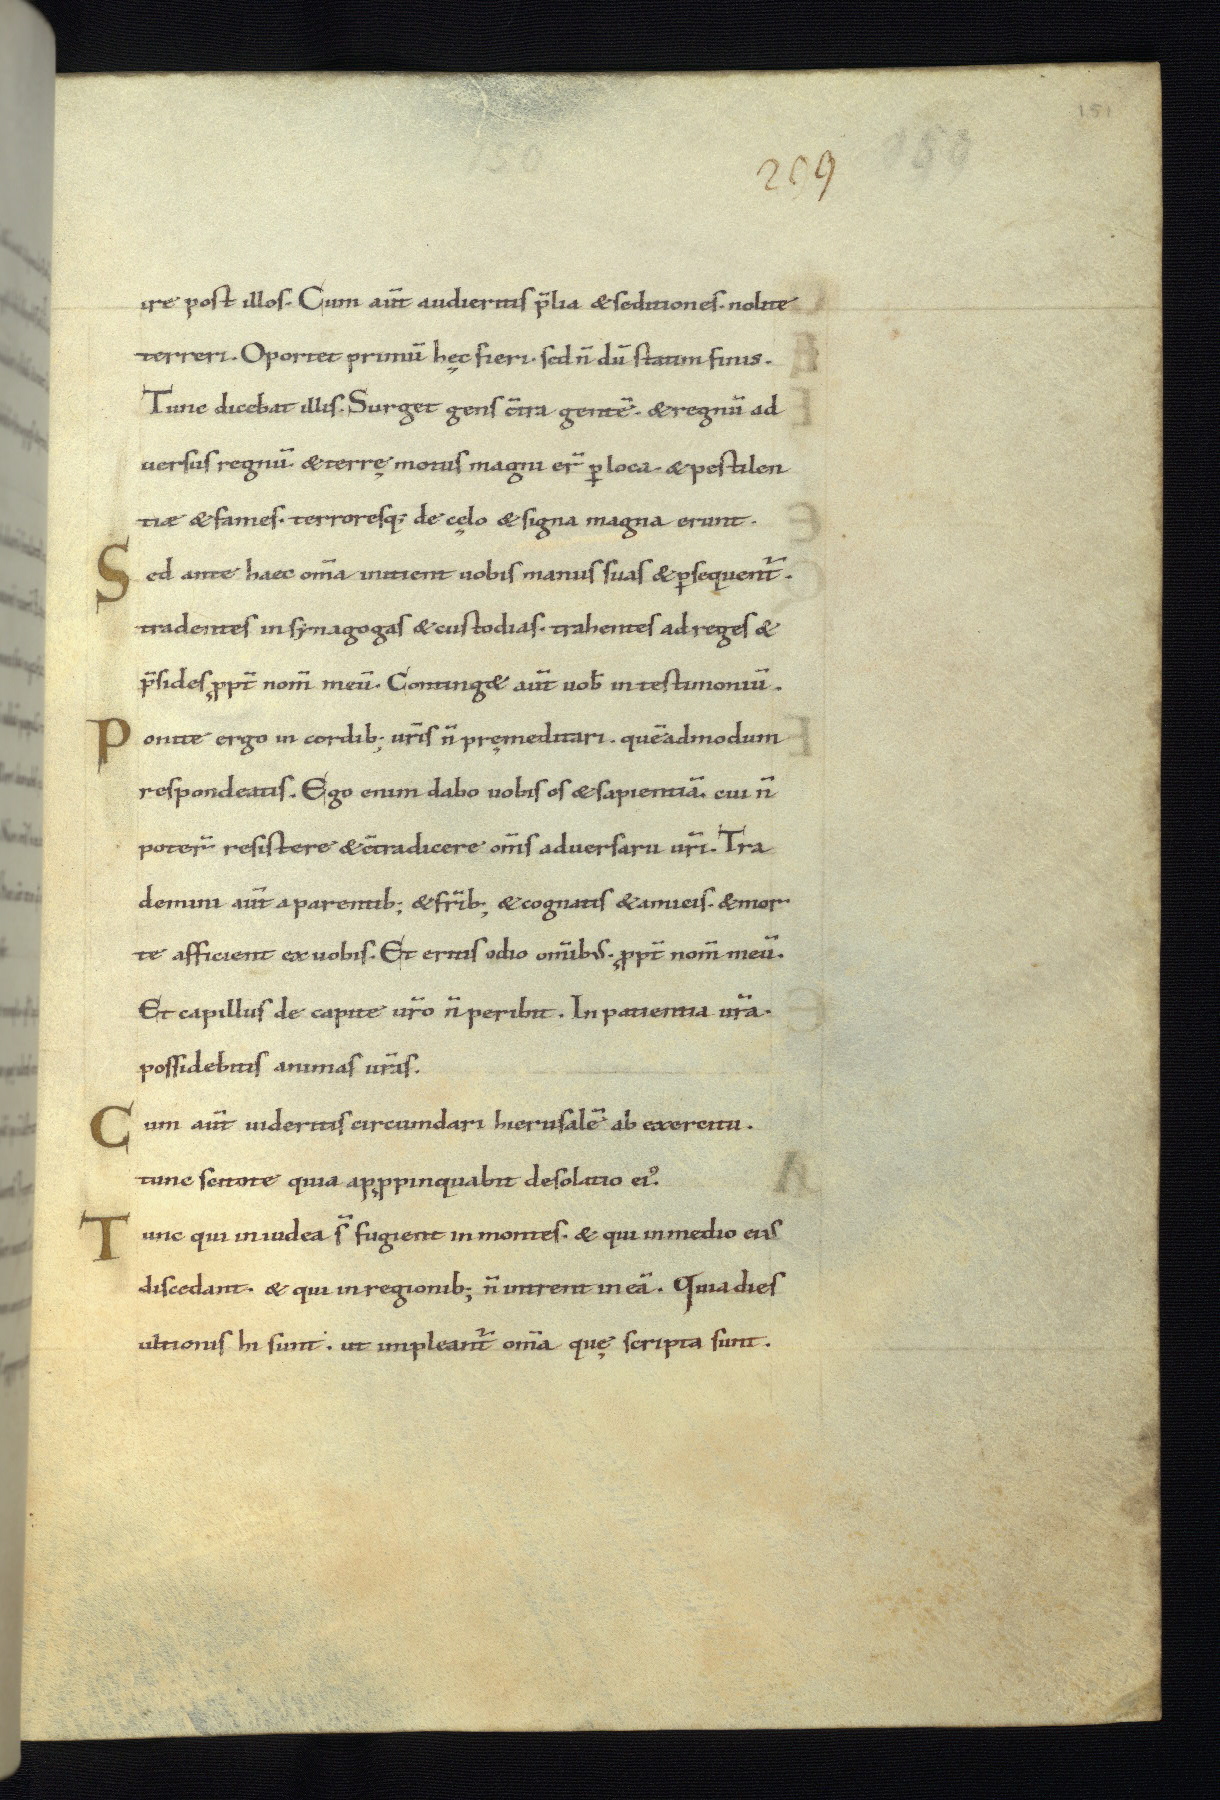 151
259
ire post illos. Cum aūt audieritis p̄lia & seditiones. nolite
terreri. Oportet primū hęc fieri. sed n̄ dū statim finis.
Tunc dicebat illis. Surget gens c̄tra gentē. & regnū ad
uersus regnū. & terrę motus magni er̄ ꝑ loca. & pestilen
tiæ & fames. terroresq; de cęlo & signa magna erunt.
Sed ante haec om̄a initient uobis manus suas & ꝑsequent̄.
tradentes in synagogas & custodias. trahentes ad reges &
p̄sides ꝓpt̄ nom̄ meū. Conting& aūt uob̄ in testimoniū.
Ponite ergo in cordib; ur̄is n̄ pręmeditari. quēadmodum
respondeatis. Ego enim dabo uobis os & sapientiā. cui n̄
poter̄ resistere & c̄tradicere om̄s aduersarii ur̄i. Tra
demini aūt a parentib; & fr̄ib; & cognatis & amicis. & mor
te afficient ex uobis. Et eritis odio om̄ibus. ꝓpt̄ nom̄ meū.
Et capillus de capite ur̄o n̄ peribit. In patientia ur̄a.
possidebitis animas ur̄as.
Cum aūt uideritis circumdari hierusalē ab exercitu.
tunc scitote quia apꝓpinquabit desolatio eiꝰ.
Tunc qui in iudea s̄ fugient in montes. & qui in medio eius
discedant. & qui in regionib; n̄ intrent in eā. Quia dies
ultionis hi sunt. ut impleant̄ om̄a quę scripta sunt.